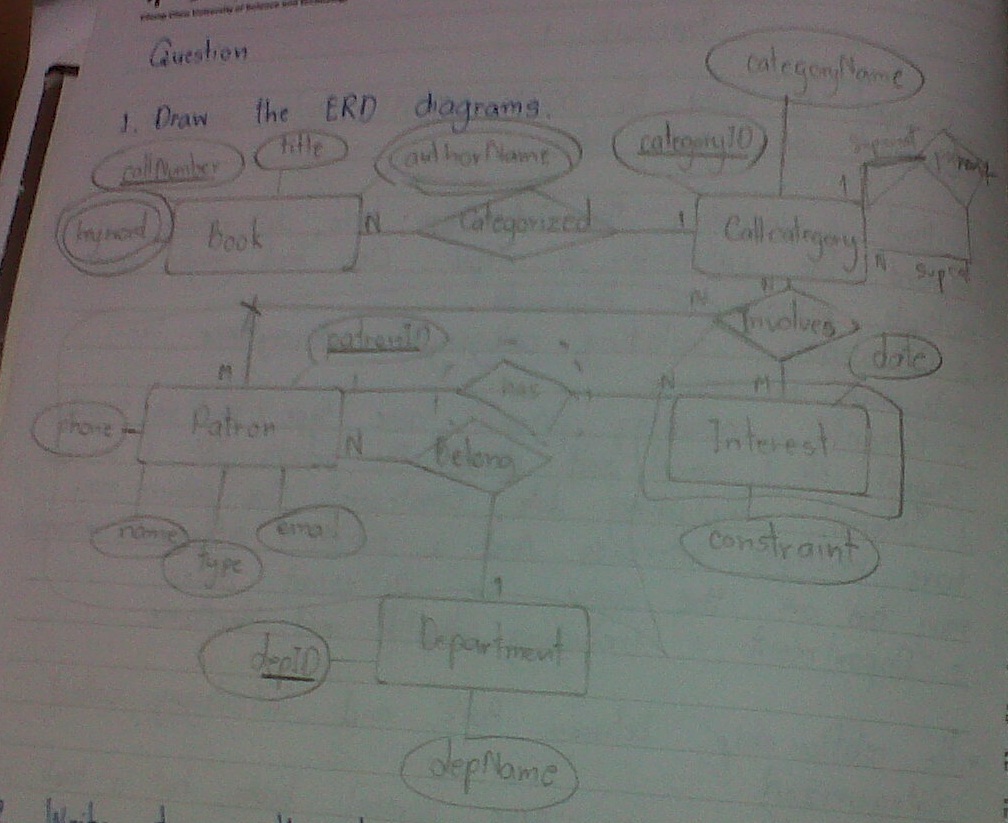 University of Science and
Question
1. Draw the ERD diagrams.
categoryName
callNumber title authorName categoryID
keyword Book N Categorized 1 Callcategory 1
parent
N
N N Involves
patronID date
M M
N has
phone Patron N Belong Interest
name type email constraint
1
depID Department
depName